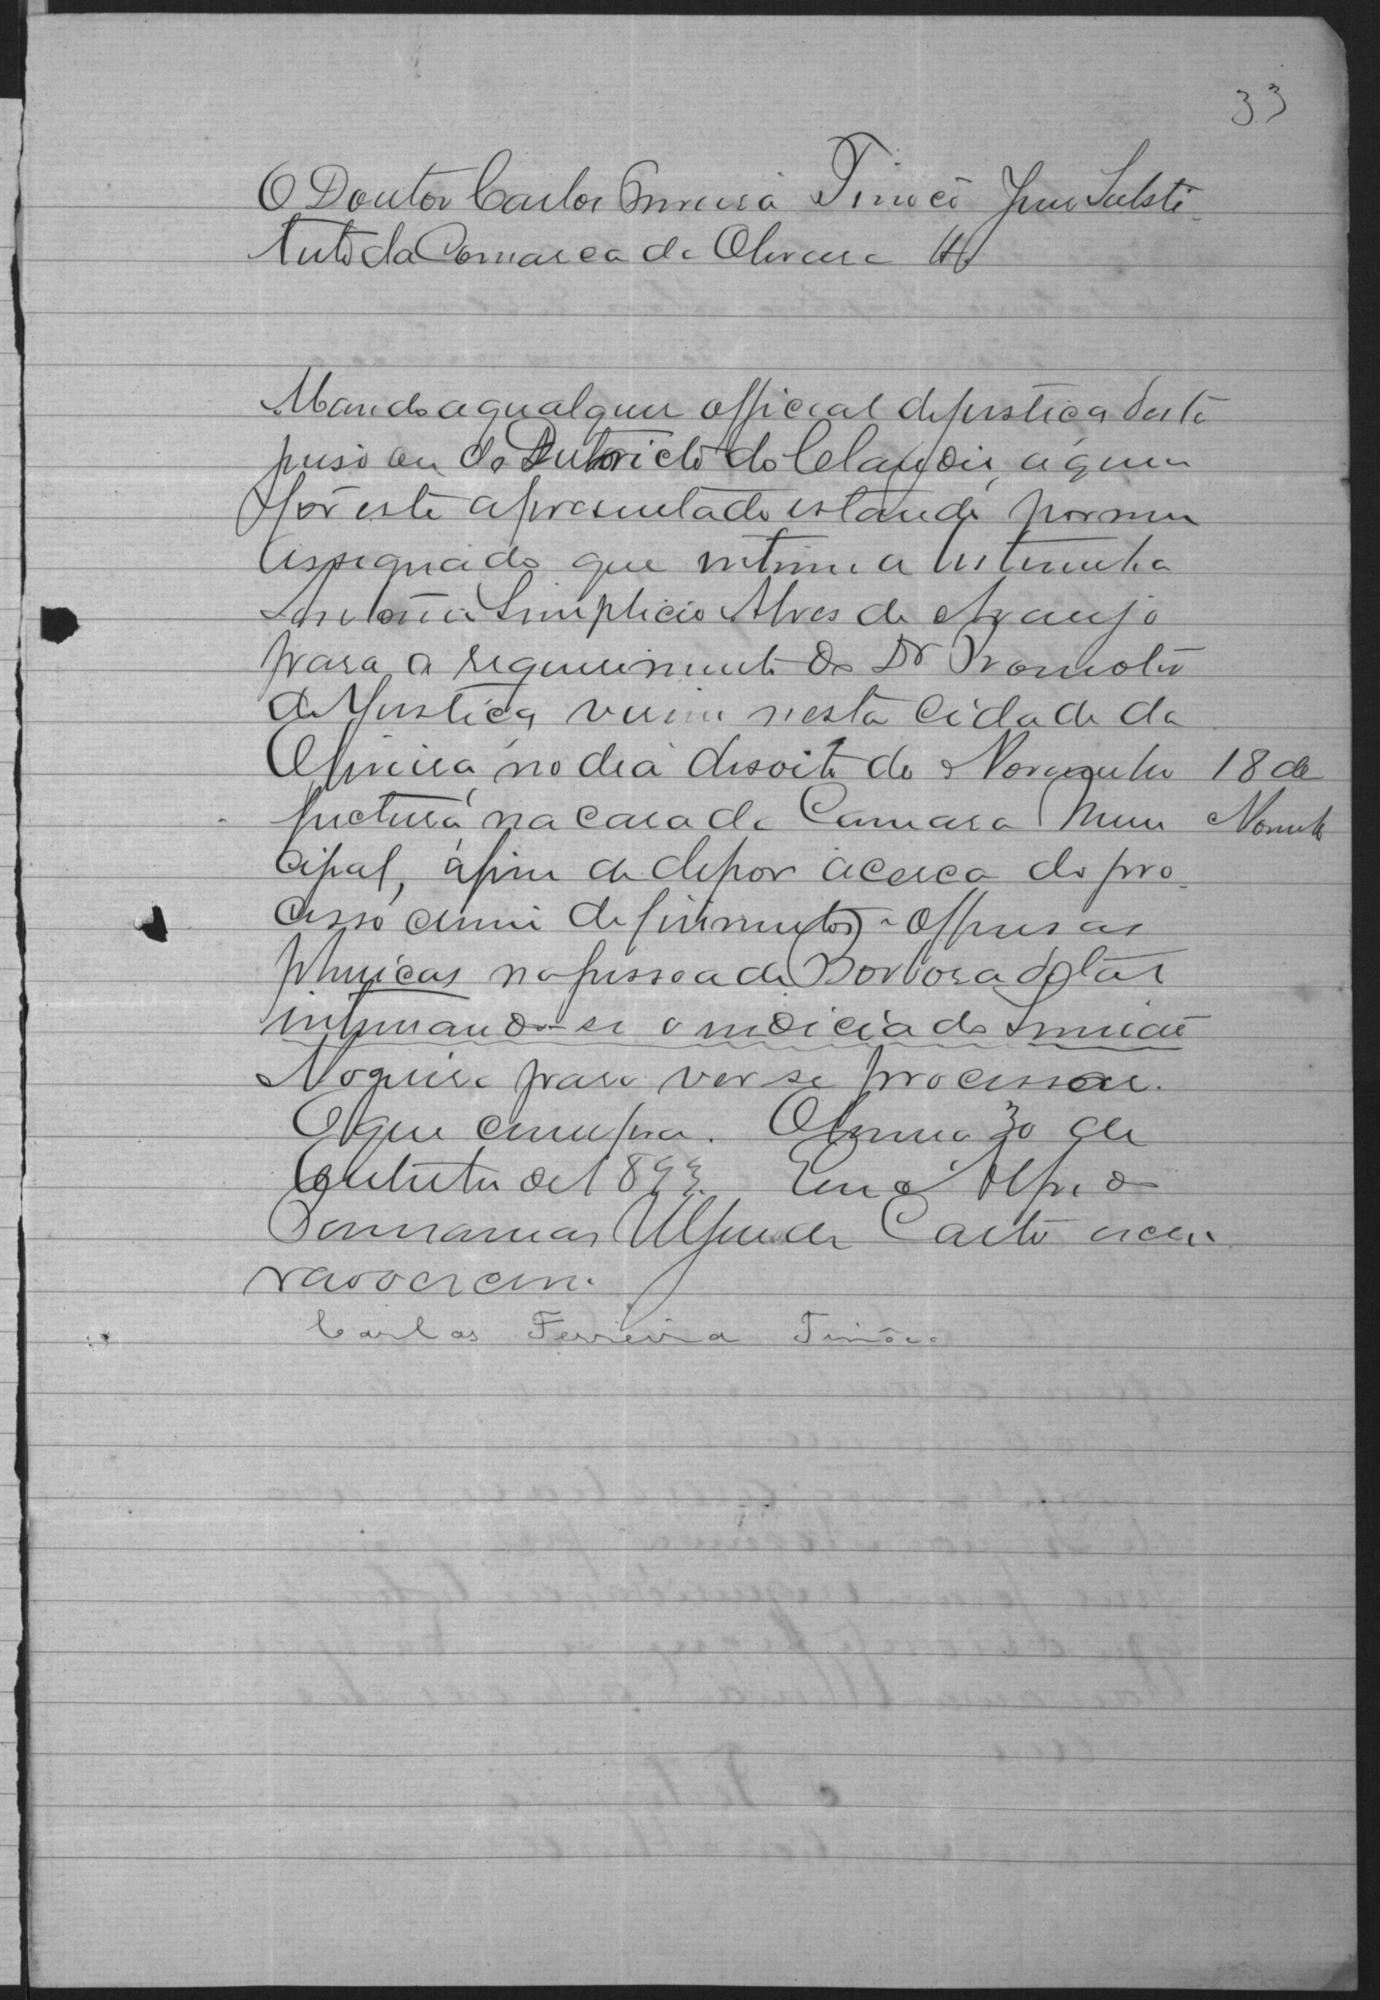 33
O Doutor Carlos Ferreira Tinoco Juiz Substi-
tuto da Comarca de Oliveira &
Mando a qualquer official de justiça deste
juiso ou do Districto do Claudio, a quem
fôr este apresentado estando por mim
assignado que intime a testemunha
Antonio Simplicio Alves de Araujo
para a requerimento do Dr Promotor
de Justiça, vir nesta cidade da
Oliveira, no dia desoito de Novembro 18 de
futuro, na casa da Camara Muni Novembro
cipal, áfim de depor acerca do pro-
cesso crime de ferimentos e offensas
phisicas na pessoa de Barbosa
intimando-se o indiciado
Nogueira para ver se processar.
O que cumpra. Oliveira 30 de
Outubro de 1893. Eu
Carlos Ferreira Tinôco